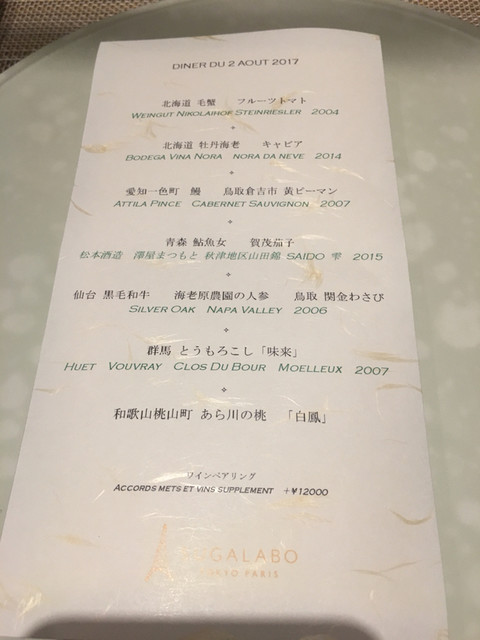 DINER DU 2 AOUT 2017
北海道 毛蟹 フルーツトマト
WEINGUT NIKOLAIHOF STEINRIESLER 2004
北海道 牡丹海老 キャビア
BODEGA VINA NORA NORA DA NEVE 2014
愛知一色町 鰻 鳥取倉吉市 黄ピーマン
ATTILA PINCE CABERNET SAUVIGNON 2007
青森 鮎魚女 賀茂茄子
松本酒造 澤屋まつもと 秋津地区山田錦 SAIDO 雫 2015
仙台 黒毛和牛 海老原農園の人参 鳥取 関金わさび
SILVER OAK NAPA VALLEY 2006
群馬 とうもろこし「味来」
HUET VOUVRAY CLOS DU BOUR MOELLEUX 2007
和歌山桃山町 あら川の桃 「白鳳」
ワインペアリング
ACCORDS METS ET VINS SUPPLEMENT +¥12000
GALABO
TOKYO PARIS